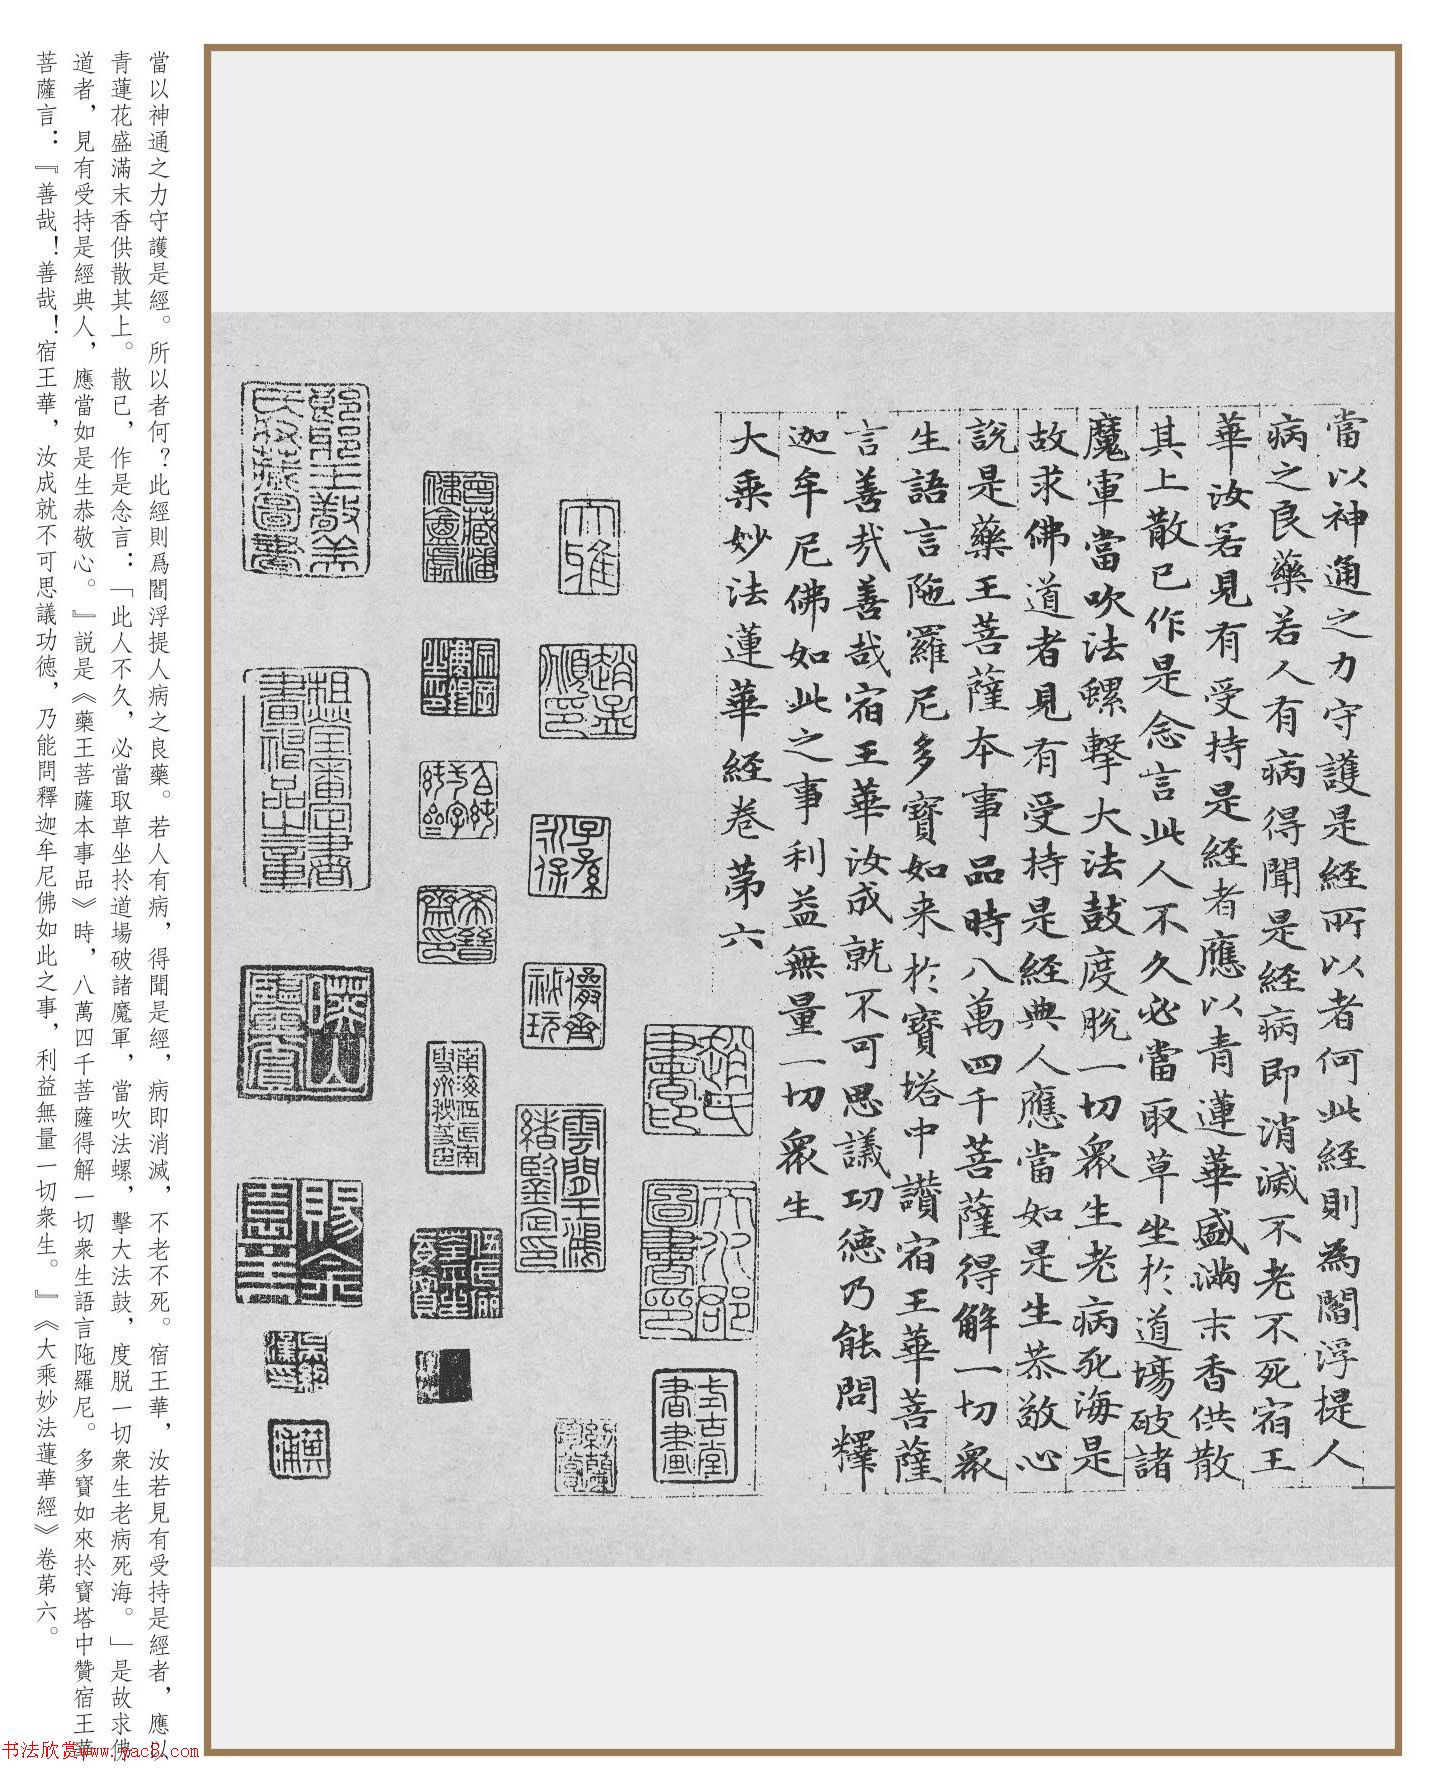 當以神通之力守護是經所以者何此經則為閻浮提人
病之良藥若人有病得聞是經病即消滅不老不死宿王
華汝若見有受持是經者應以青蓮華盛滿末香供散
其上散已作是念言此人不久必當取草坐於道場破諸
魔軍當吹法螺擊大法鼓度脫一切眾生老病死海是
故求佛道者見有受持是經典人應當如是生恭敬心
說是藥王菩薩本事品時八萬四千菩薩得解一切眾
生語言陁羅尼多寶如来於寶塔中讚宿王華菩薩
言善哉善哉宿王華汝成就不可思議功德乃能問釋
迦牟尼佛如此之事利益無量一切眾生
大乘妙法蓮華經卷第六
趙氏書印
大雅
趙孟頫印
子孫永保
儀周珍玩
賜金園主
黃浦
當以神通之力守護是經。所以者何？此經則爲閻浮提人病之良藥。若人有病，得聞是經，病即消滅，不老不死。宿王華，汝若見有受持是經者，應以
青蓮花盛滿末香供散其上。散已，作是念言：「此人不久，必當取草坐於道場破諸魔軍，當吹法螺，擊大法鼓，度脱一切衆生老病死海。」是故求佛
道者，見有受持是經典人，應當如是生恭敬心。』説是《藥王菩薩本事品》時，八萬四千菩薩得解一切衆生語言陁羅尼。多寶如來於寶塔中贊宿王華
菩薩言：『善哉！善哉！宿王華，汝成就不可思議功德，乃能問釋迦牟尼佛如此之事，利益無量一切衆生。』《大乘妙法蓮華經》卷第六。
书法欣赏www.yac8.com